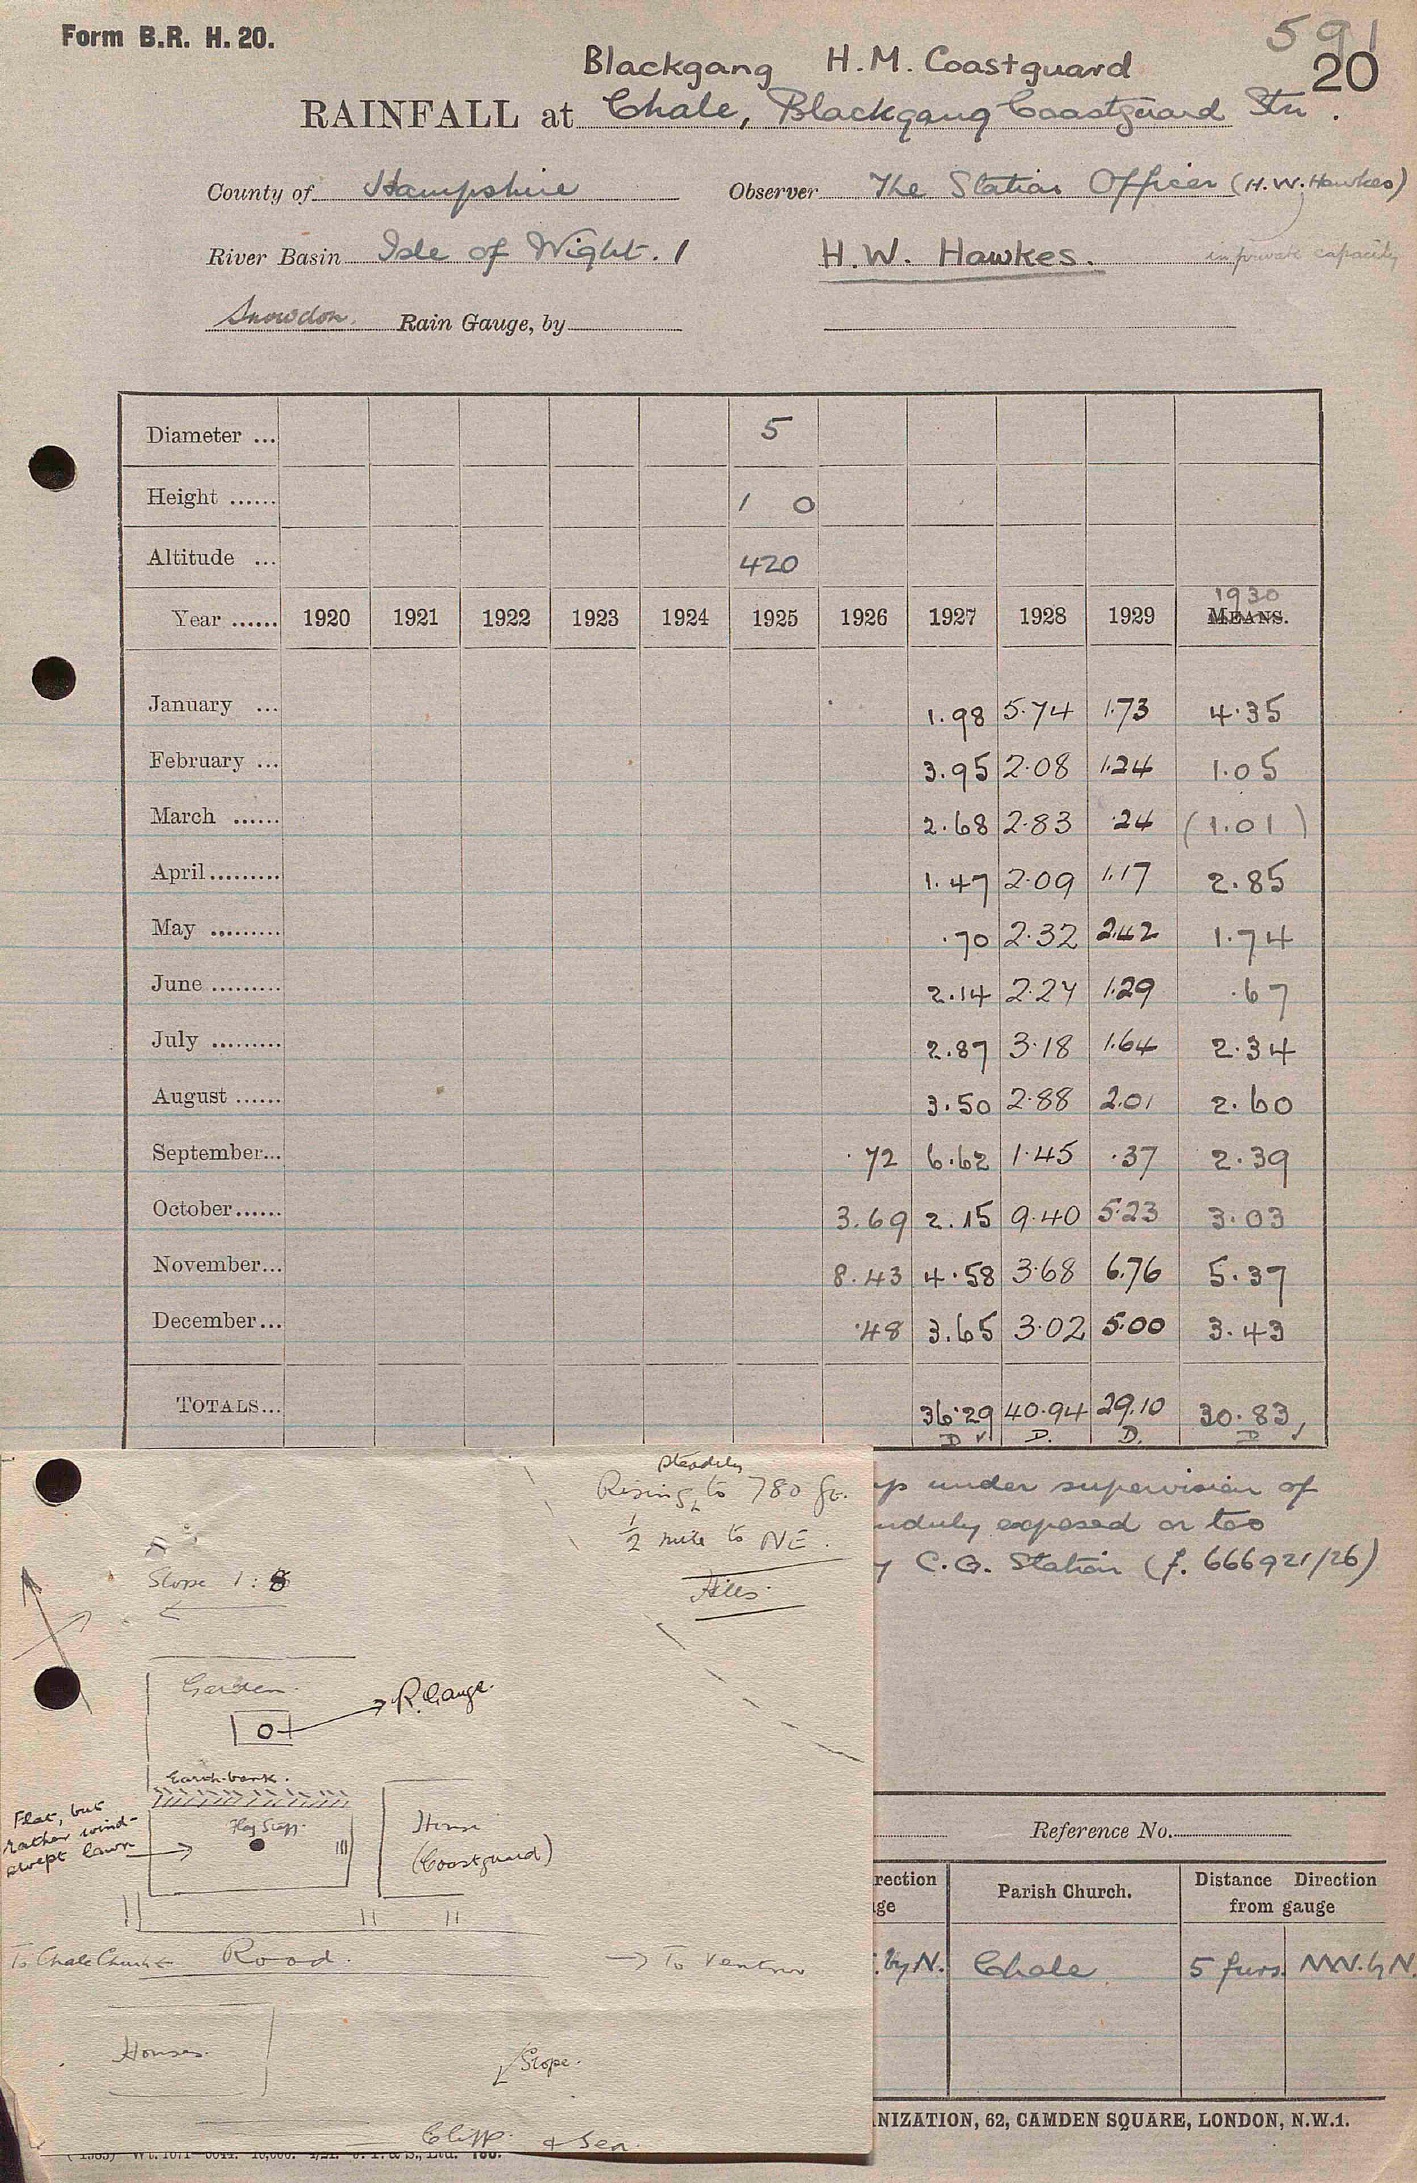 Form B.R. H. 20.
591
20
Blackgang H.M. Coastguard
RAINFALL at Chale, Blackgang Coastguard Stn.
County of Hampshire Observer The Station Officer (H.W. Hawkes)
River Basin Isle of Wight. 1 H.W. Hawkes. in private capacity
Snowdon. Rain Gauge, by
Diameter ... 5
Height ...... 1 0
Altitude ... 420
1930
Year ...... 1920 1921 1922 1923 1924 1925 1926 1927 1928 1929 MEANS.
January ... 1.98 5.74 1.73 4.35
February ... 3.95 2.08 1.24 1.05
March ...... 2.68 2.83 .24 (1.01)
April......... 1.47 2.09 1.17 2.85
May ......... .70 2.32 2.42 1.74
June ......... 2.14 2.27 1.29 .67
July ......... 2.87 3.18 1.64 2.34
August ...... 3.50 2.88 2.01 2.60
September... .72 6.62 1.45 .37 2.39
October...... 3.69 2.15 9.40 5.23 3.03
November... 8.43 4.58 3.68 6.76 5.37
December... .48 3.65 3.02 5.00 3.43
TOTALS... 36.29 40.94 29.10 30.83
D D. D. D
up under supervision of
unduly exposed or too
y C.G. Station (f. 666921/26)
steadily
Rising to 780 ft.
1/2 mile to NE.
Hills.
Slope 1:8
Garden.
R. Gauge.
Earth-bank.
Flat, but
rather wind-
swept lawn
Flag Staff.
House
(Coastguard)
To Chale Church Road. To Ventnor
Houses.
Slope.
Cliff. & Sea.
Reference No.
rection
ge
Parish Church.
Distance Direction
from gauge
. by N. Chale 5 furs. NW. by N.
NIZATION, 62, CAMDEN SQUARE, LONDON, N.W.1.